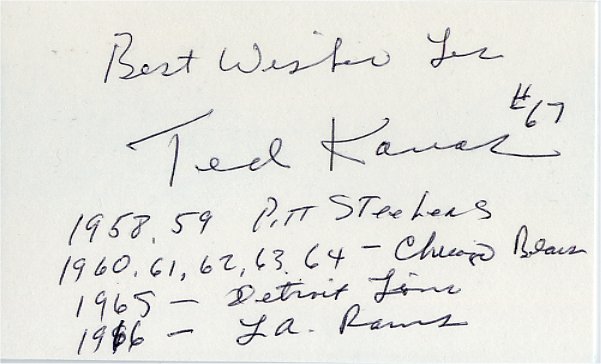 Best Wishes Les
#67
Ted Karras
1958, 59 Pitt Steelers
1960, 61, 62, 63, 64 - Chicago Bears
1965 - Detroit Lions
1966 - L.A. Rams